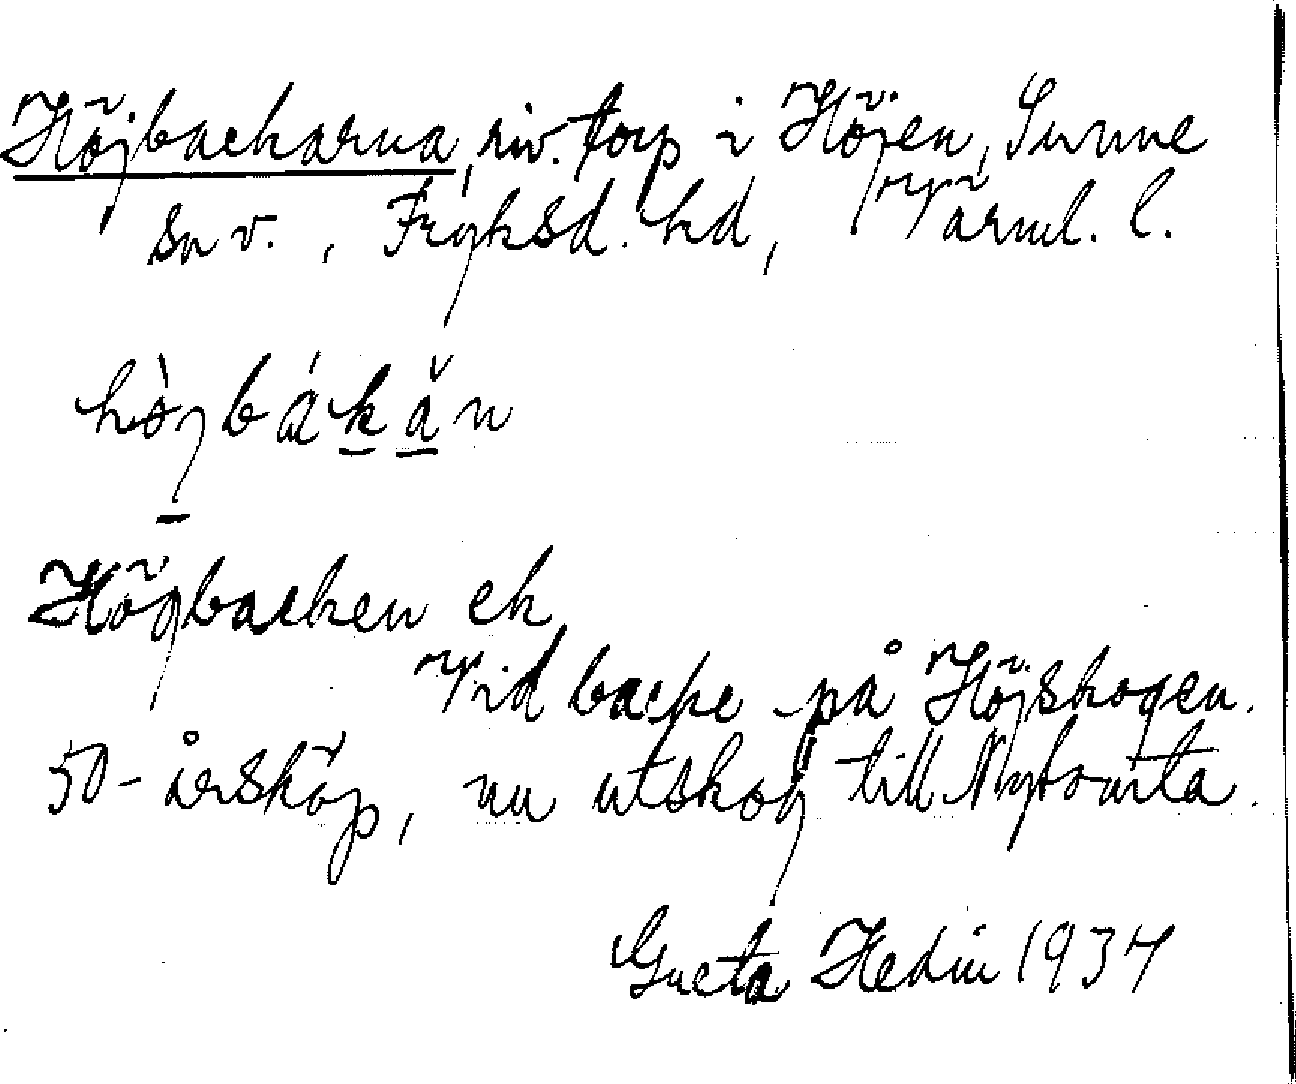 Höjbackarna, riv. torp i Höjen, Sunne
sn v., Fryksd. hd, Värml. l.
hòjbákăn
Högbacken ek
Vid backe på Höjskogen.
50-årsköp, nu utskog till Nytomta.
Greta Hedin 1937